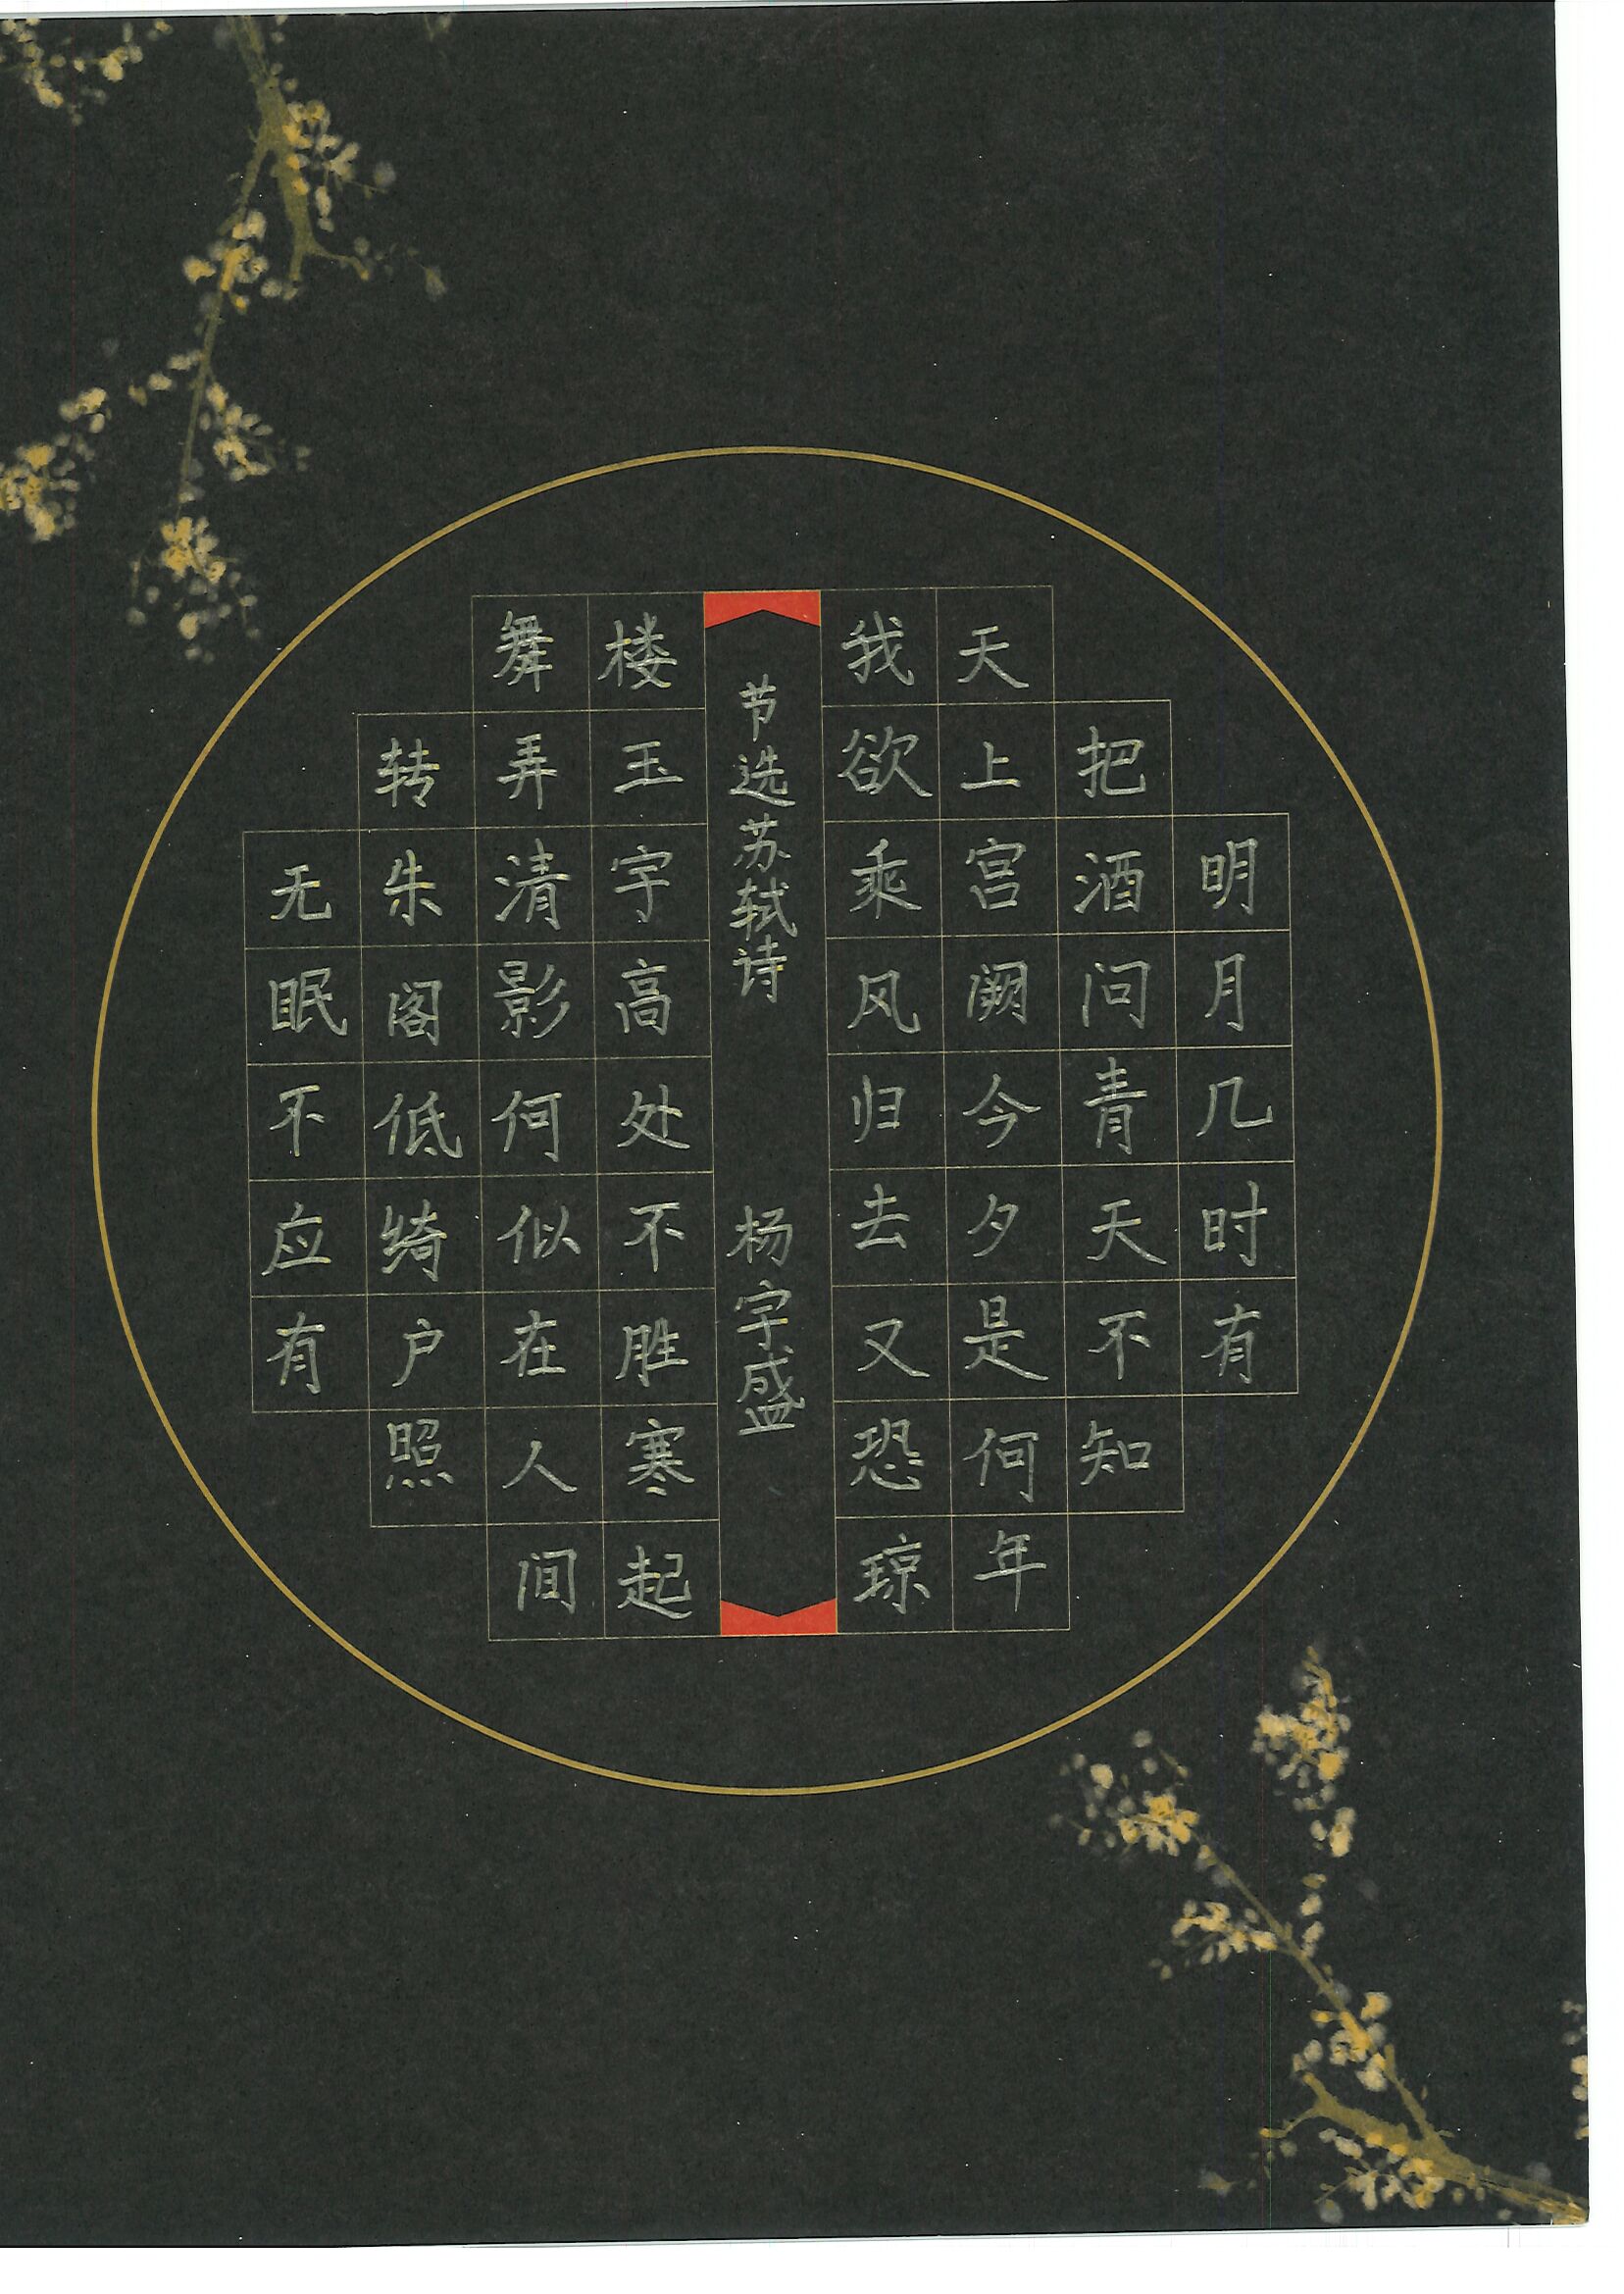 明月几时有
把酒问青天不知
天上宫阙今夕是何年
我欲乘风归去又恐琼
节选苏轼诗 杨宇盛
楼玉宇高处不胜寒起
舞弄清影何似在人间
转朱阁低绮户照
无眠不应有